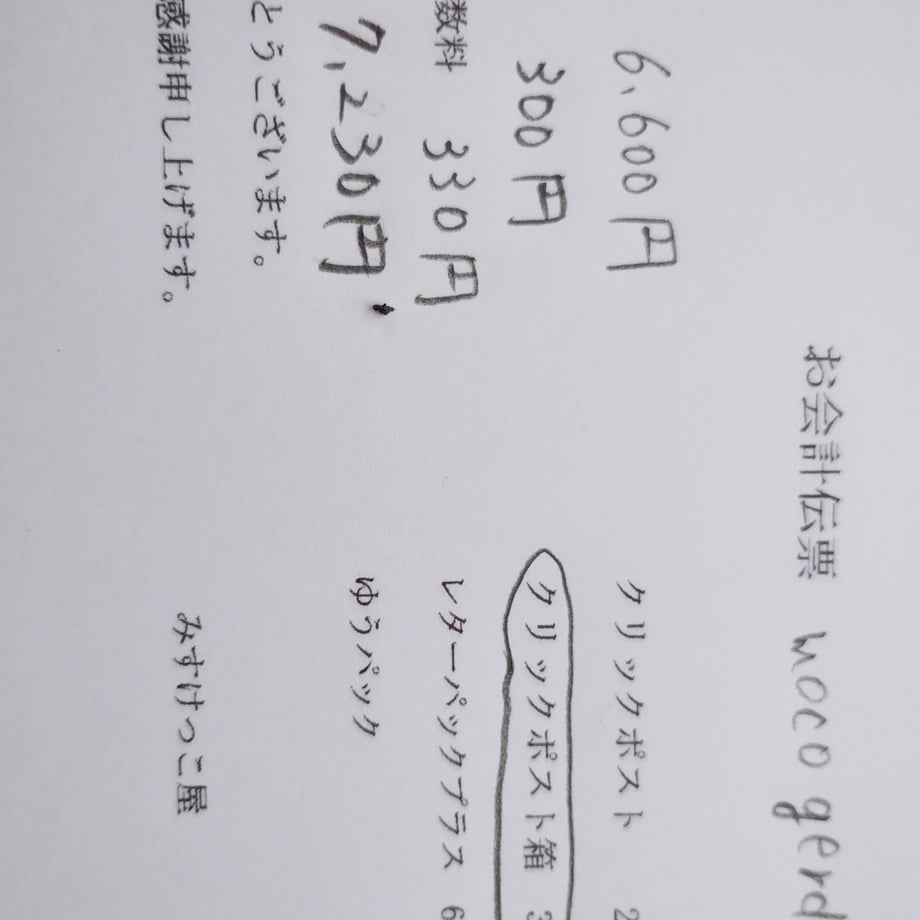 お会計伝票 moco gerd
6,600円
クリックポスト 2
300円
クリックポスト箱 3
数料 330円
レターパックプラス 6
7,230円
ゆうパック
とうございます。
感謝申し上げます。
みすけっこ屋